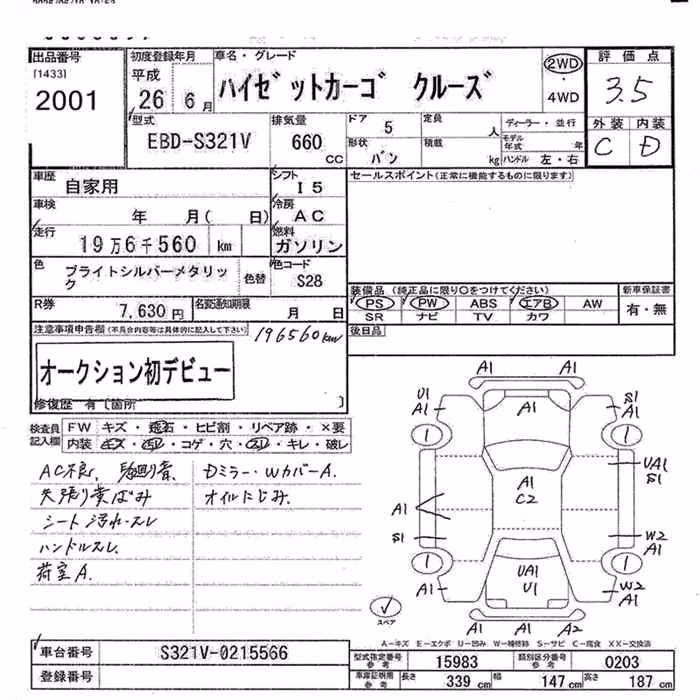 出品番号
[1433]
2001
初度登録年月
平成
26 6月
車名・グレード
ハイゼットカーゴ クルーズ
2WD
・
4WD
評価点
3.5
外装 内装
C D
型式
EBD-S321V
排気量
660
CC
ドア
5
定員
人
形状
バン
積載
kg
ディーラー・並行
モデル年式
年
ハンドル 左・右
車歴
自家用
シフト
I5
セールスポイント(正常に機能するものに限ります)
車検
年 月( 日)
冷房
AC
走行
19万6千560 km
燃料
ガソリン
色
ブライトシルバーメタリック
色替
色コード
S28
装備品 (純正品に限り○をつけてください)
PS PW ABS エアB AW
SR ナビ TV カワ
新車保証書
有・無
R券
7,630円
名変通知期限
月 日
後日品
注意事項申告欄(不具合内容等は具体的に記入して下さい)
196560km
オークション初デビュー
修復歴 有〔箇所 〕
検査員
記入欄
FW キズ・飛石・ヒビ割・リペア跡・×要
内装 キズ・コゲ・穴・キレ・破レ
AC不良、 Dミラー・WカバーA.
オイルにじみ.
シート汚れ・スレ
ハンドルスレ.
荷室A.
A1
U1
A1
A1
S1
A1
1
1
UA1
S1
A1
C2
A1
S1
W2
A1
1
1
UA1
U1
A1
W2
A1
A1 A1 A2
スペア
A-キズ E-エクボ U-凹み W-補修跡 S-サビ C-腐食 XX-交換済
車台番号
S321V-0215566
登録番号
型式指定番号
参考
15983
類別区分番号
参考
0203
車庫証明用
参考
長さ
339 cm
幅
147 cm
高さ
187 cm